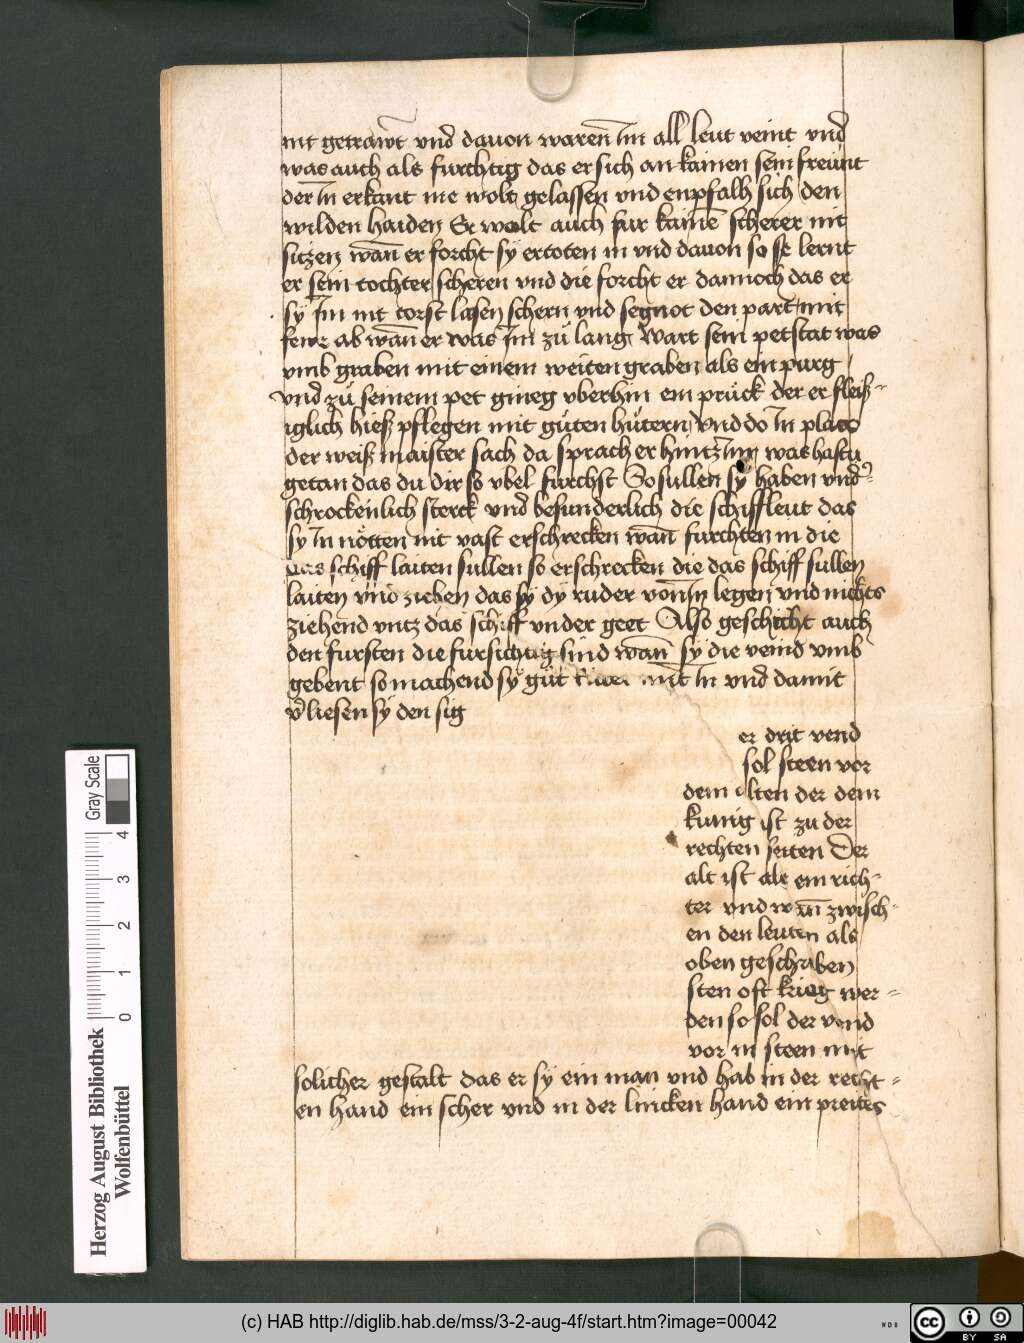 nit getrawt vnd dauon waren Im all leut veint vnd
was auch als furchtig das er sich an kainen sein freunt
der In erkant nie wolt gelassen vnd enpfalh sich den
wilden haiden Er wolt auch fur kainē scherer nit
sitzen wañ er forcht sy ertoten in vnd dauon so lernt
er sein tochter scheren vnd die forcht er dannoch das er
sy Im nit torst lasen schern vnd segnot den part mit
fewr ab wañ er was Im zü lang Wart sein petstat was
vmb graben mit einem weiten graben als ein purg
vnd zü seinem pet gineg vberhin ein prück der er fleiß-
iglich hieß pflegen mit güten hütern Vnd do In plato
der weiß maister sach da sprach er hintz Im was hastu
getan das du dir so vbel furchst So sullen sy haben vnd-
schrockenlich sterck vnd besunderlich die schiffleut das
sy In nötten nit vast erschrecken wañ furchten in die
das schiff laiten sullen so erschrecken die das schiff sullen
laiten vnd ziehen das sy dy ruder von In legen vnd nichts
ziehend vntz das schiff vnder geet Also geschicht auch
den fursten die fursichtig sind wañ sy die veind vmb
gebent so machend sy güt mit In vnd damit
v̄liesen sy den sig
er drit vend
sol steen vor
dem alten der dem
kunig ist zu der
rechten seiten Der
alt ist als ein rich-
ter vnd wañ zwisch-
en den leuten als
oben geschriben
sten oft krieg wer-
den so sol der vend
vor in steen mit
solicher gestalt das er sy ein man vnd hab in der recht-
en hand ein scher vnd in der lincken hand ein preites
Gray Scale
4
3
2
1
0
Herzog August Bibliothek
Wolfenbüttel
(c) HAB http://diglib.hab.de/mss/3-2-aug-4f/start.htm?image=00042
WDB
cc
BY SA